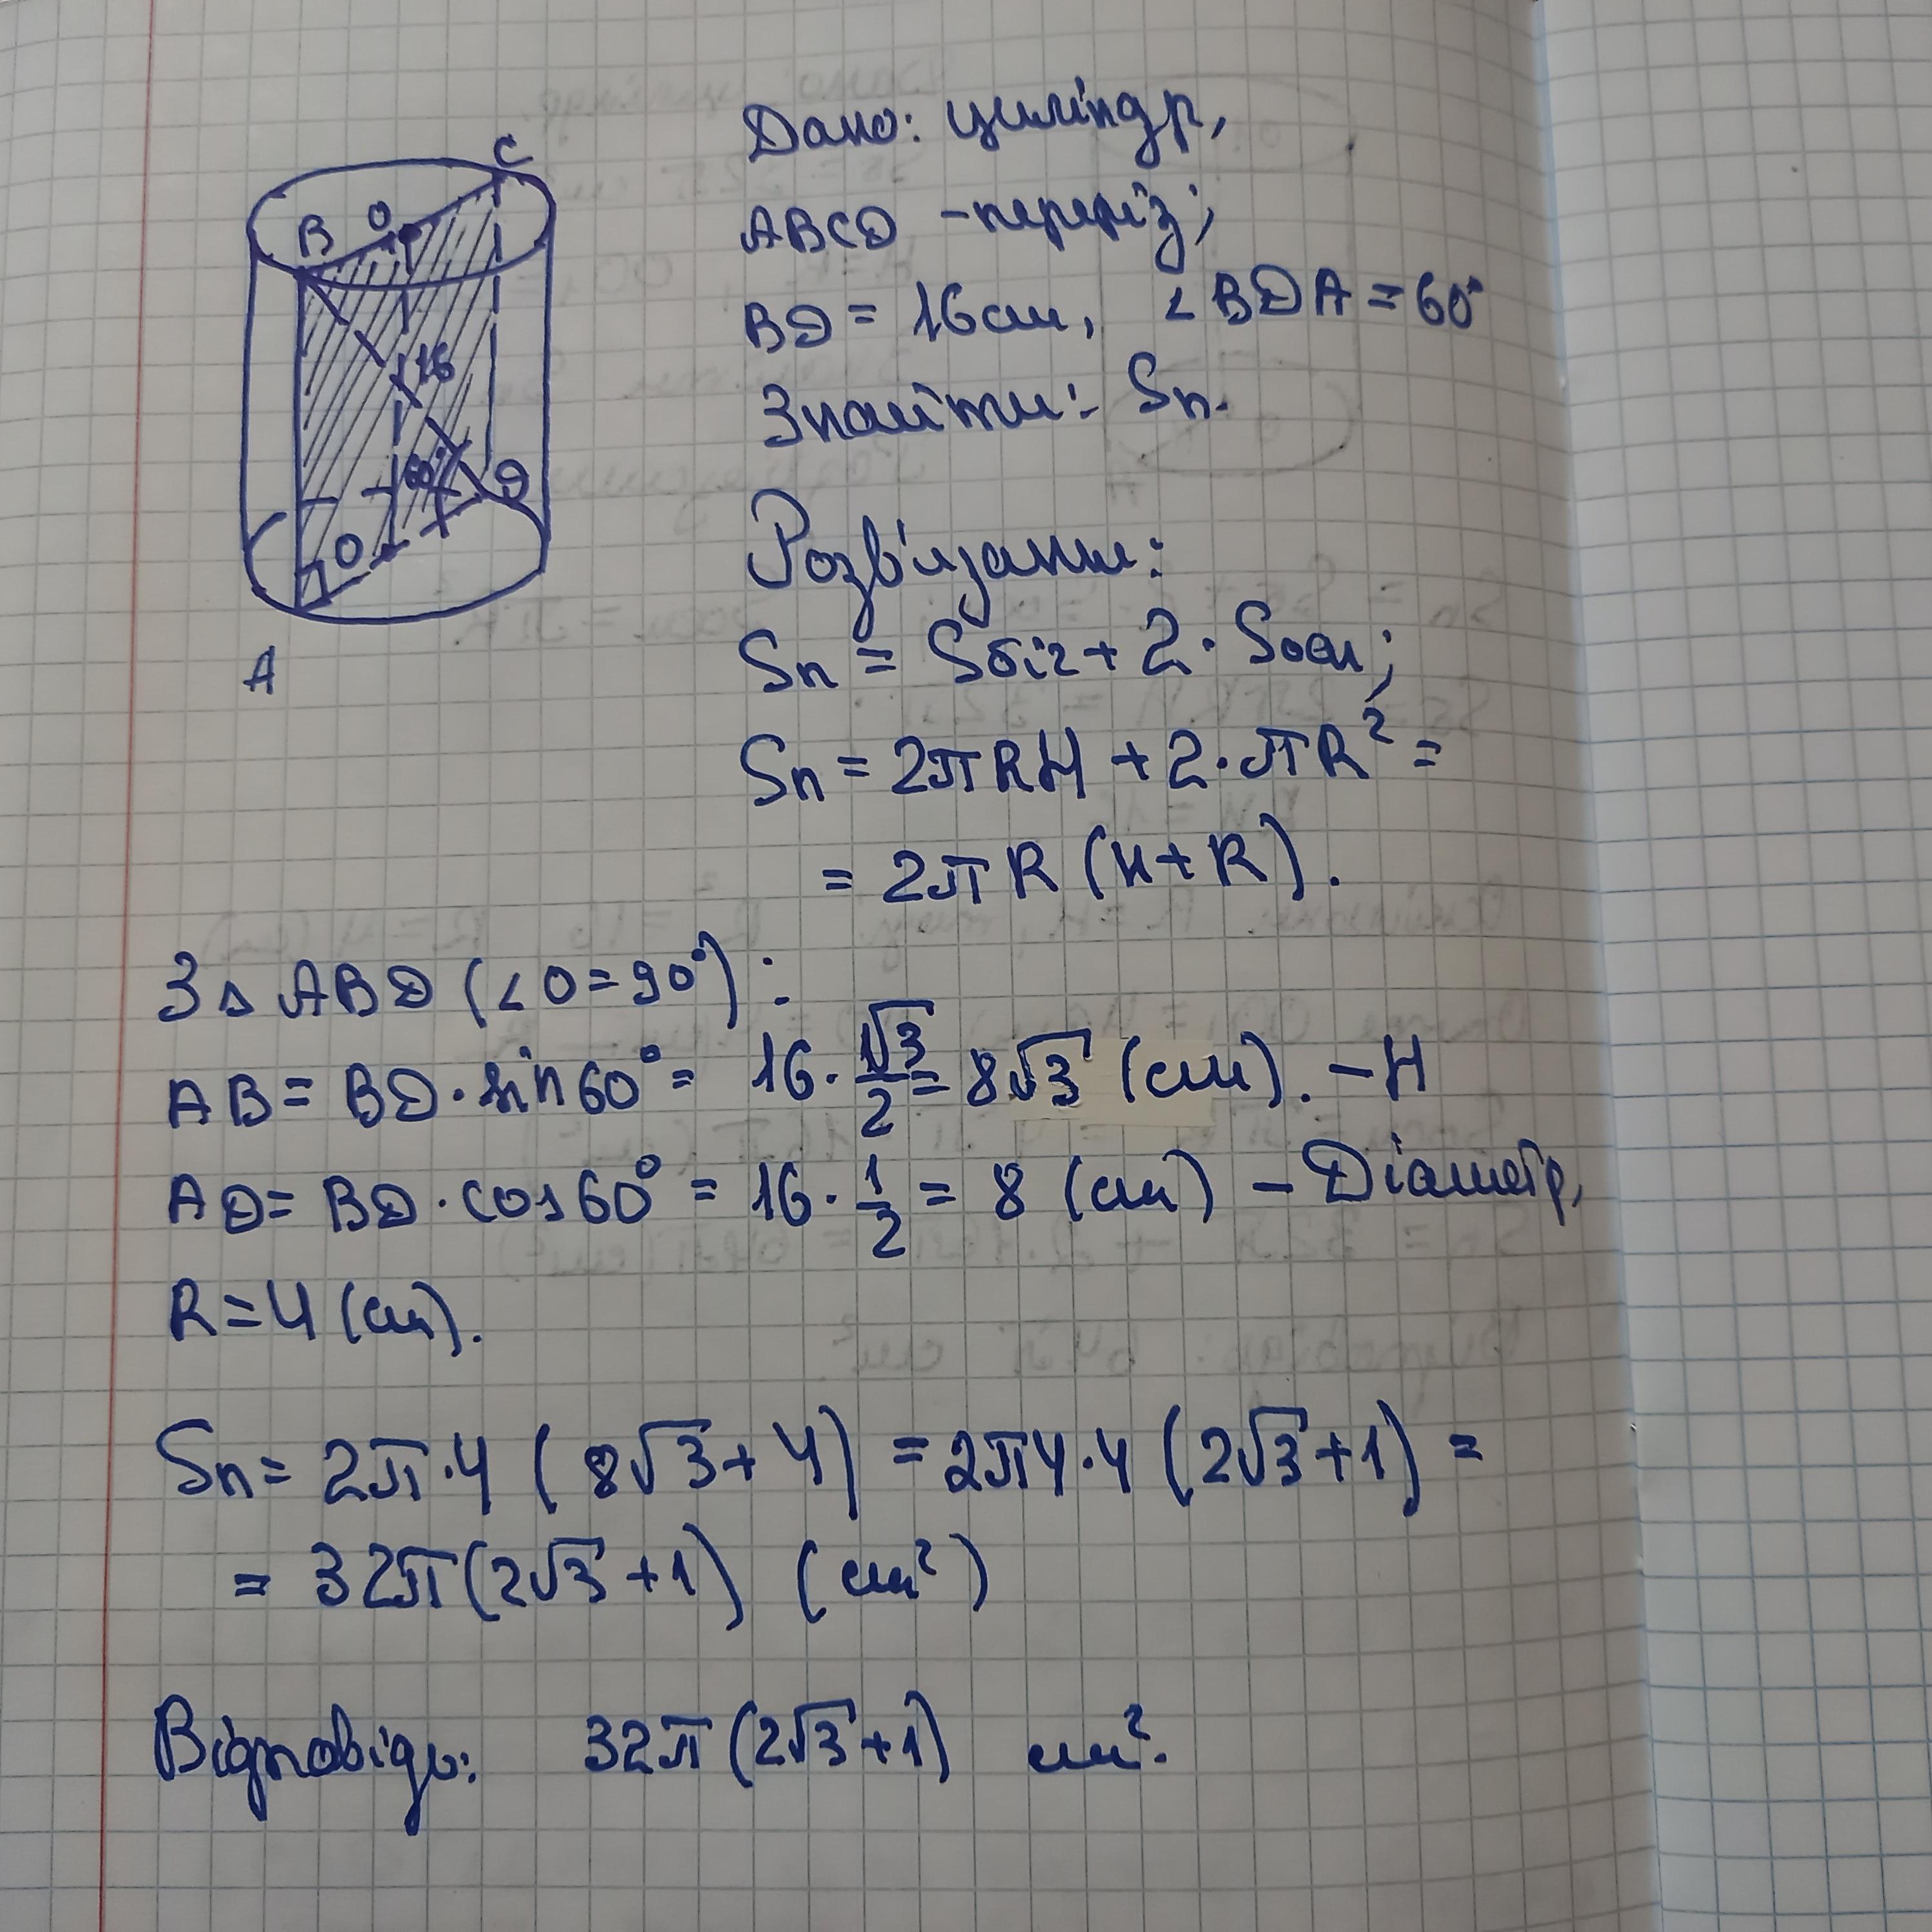 C
B O₁
16
60°
D
O
A
Дано: циліндр,
ABCD - переріз;
BD = 16 см, ∠BDA = 60°
Знайти: Sп.
Розв'язання:
Sп = Sбіч + 2 · Sосн;
Sп = 2πRH + 2·πR² =
= 2πR (H+R).
З △ ABD (∠O = 90°):
AB = BD · sin60° = 16 · √3/2 = 8√3 (см). - H
AD = BD · cos60° = 16 · 1/2 = 8 (см) - Діаметр,
R = 4 (см).
Sп = 2π·4 (8√3 + 4) = 2π4·4 (2√3 + 1) =
= 32π(2√3 + 1) (см²)
Відповідь: 32π (2√3 + 1) см².